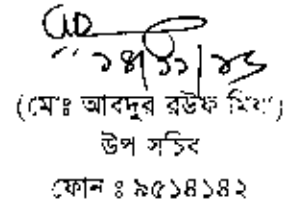 ১৪/১১/১৩
(মোঃ আবদুর রউফ মিয়া)
উপ সচিব
ফোন ঃ ৯৫১৪১৪২